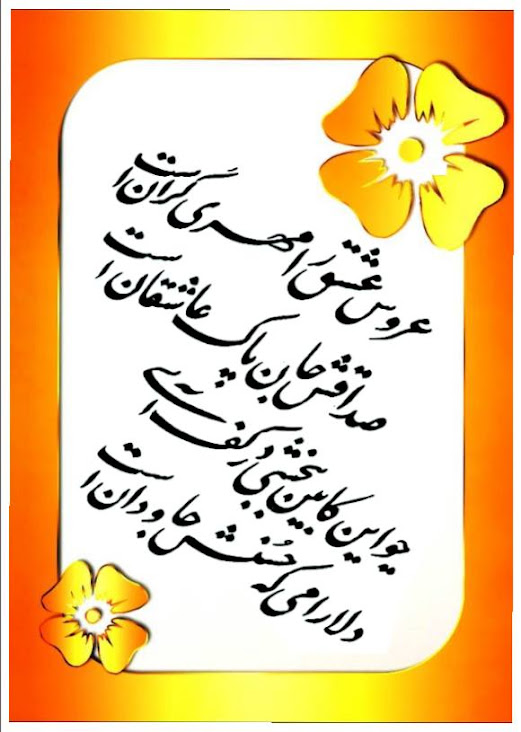 عروس عشق را مهری گران است
صداقش جان پاک عاشقان است
چو این کابین ببخشی در کف آری
دلارامی که حُسنش جاودان است